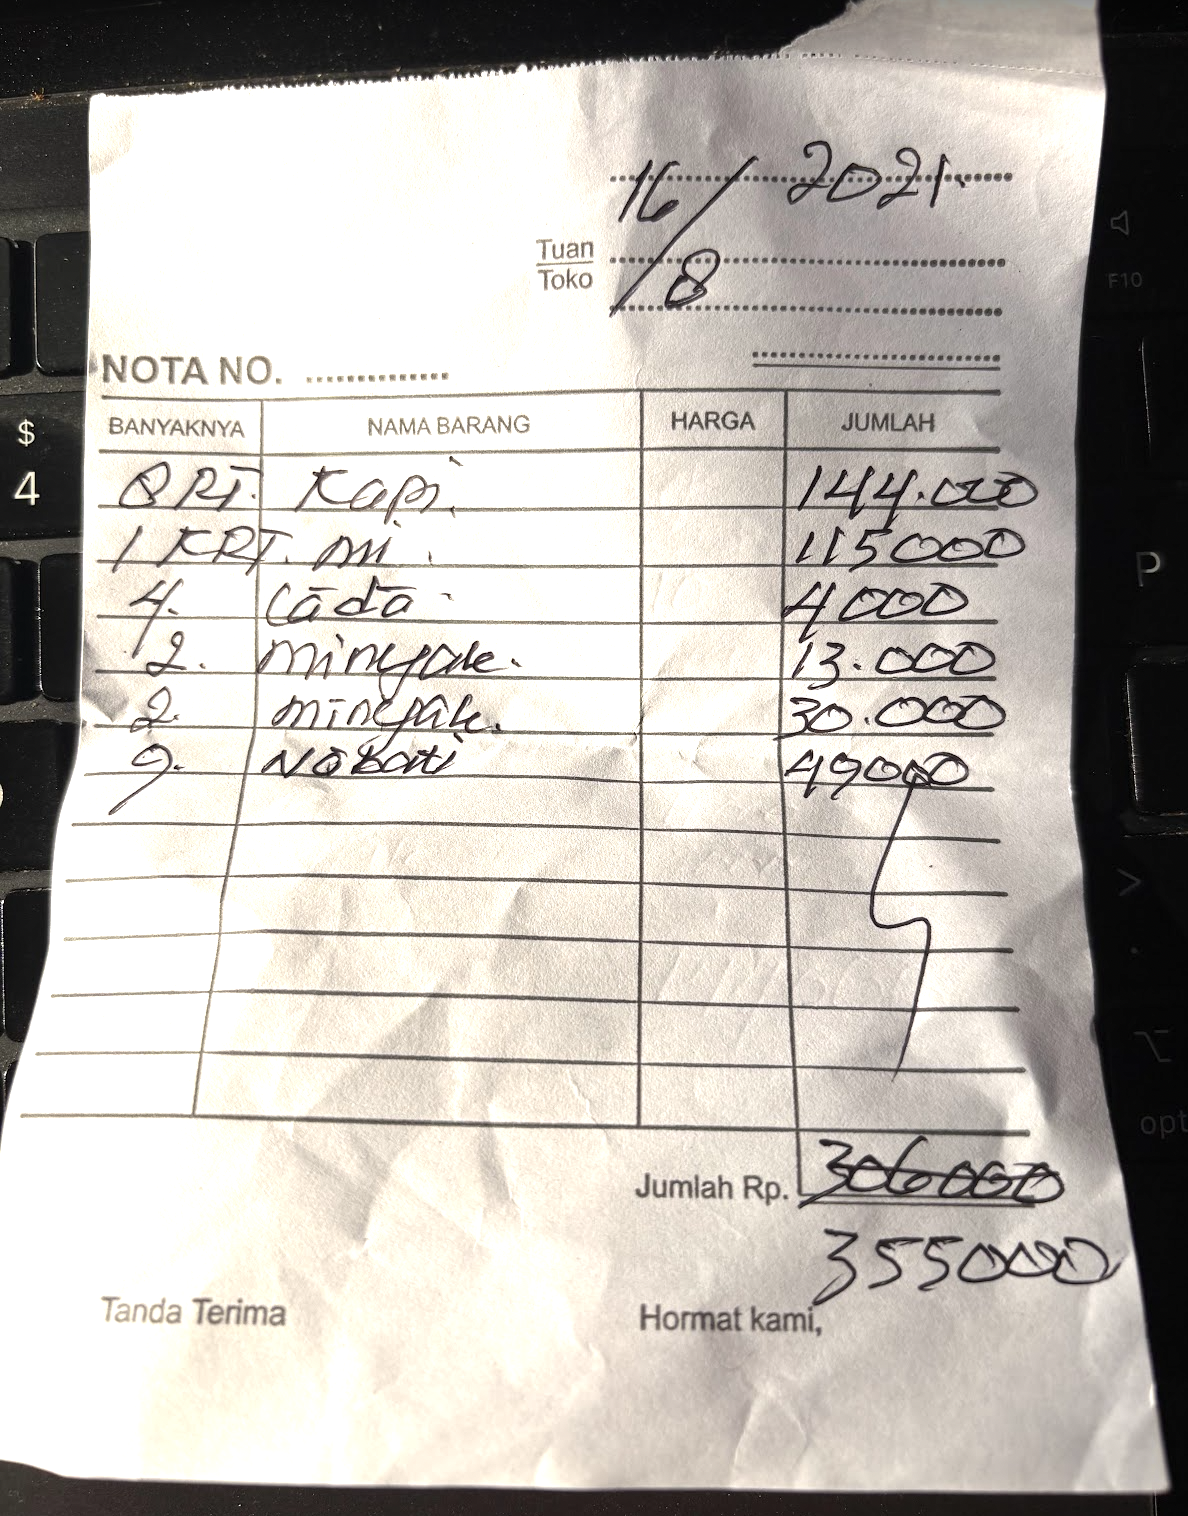 16/8 2021.
Tuan
Toko
NOTA NO. ..............
BANYAKNYA NAMA BARANG HARGA JUMLAH
8 RT. Kopi. 144.000
1 KRT. mi. 115000
4. Lada 4000
2. minyak. 13.000
2. minyak. 30.000
9. Nabati 49000
Jumlah Rp. 306000
355000
Tanda Terima Hormat kami,
$
4
F10
P
>
.
opt